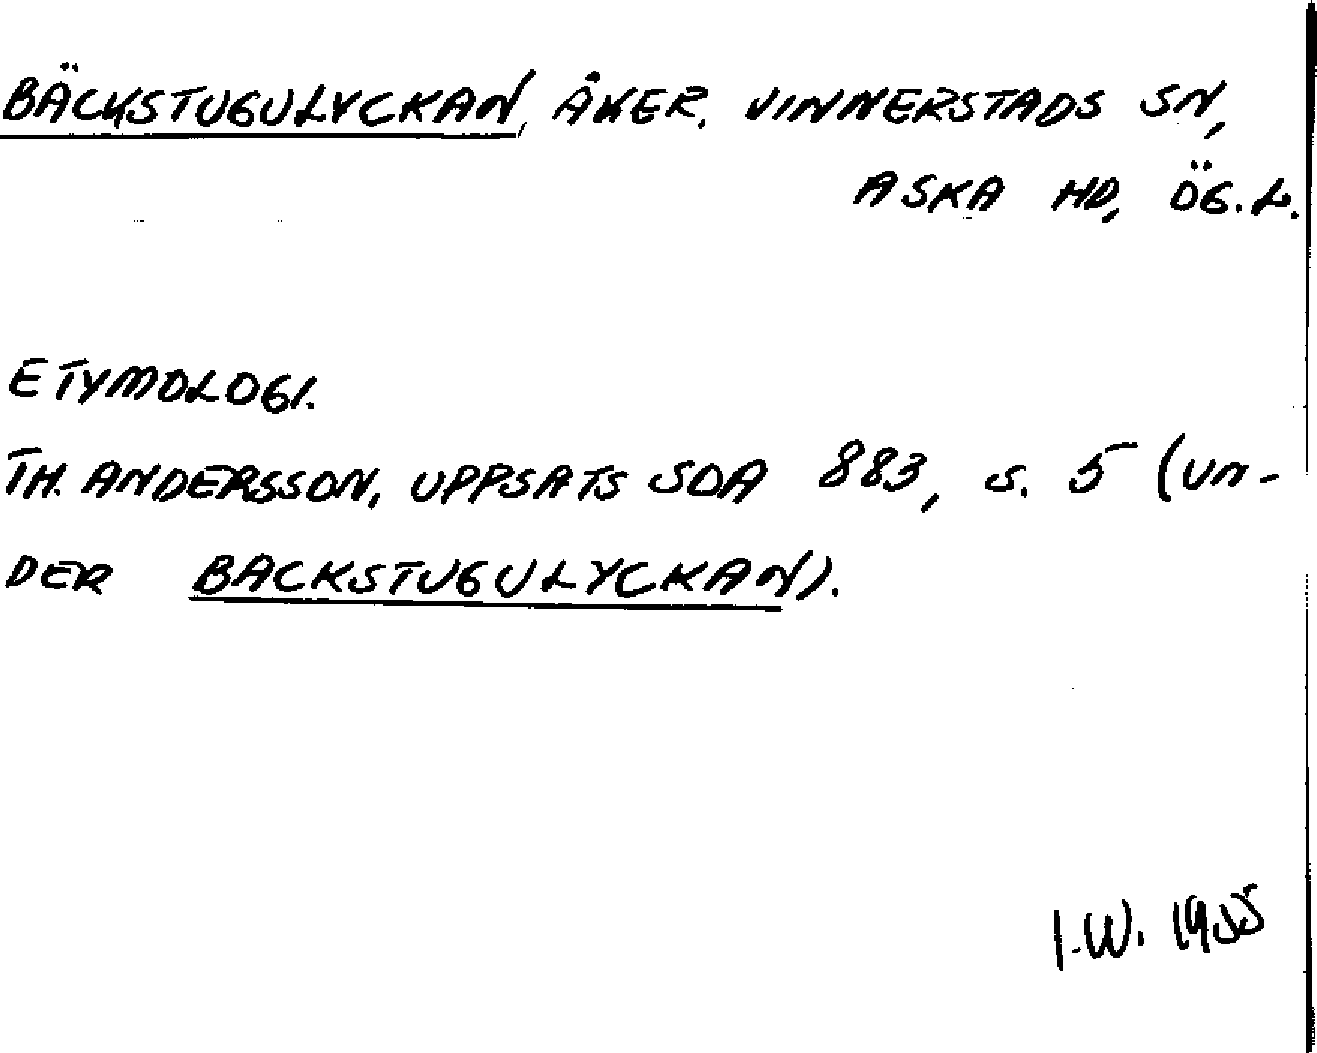 BÄCKSTUGULYCKAN, ÅKER. VINNERSTADS SN,
ASKA HD, ÖG. L.
ETYMOLOGI.
TH. ANDERSSON, UPPSATS SOA 883, S. 5 (UN-
DER BACKSTUGULYCKAN).
I.W. 1955